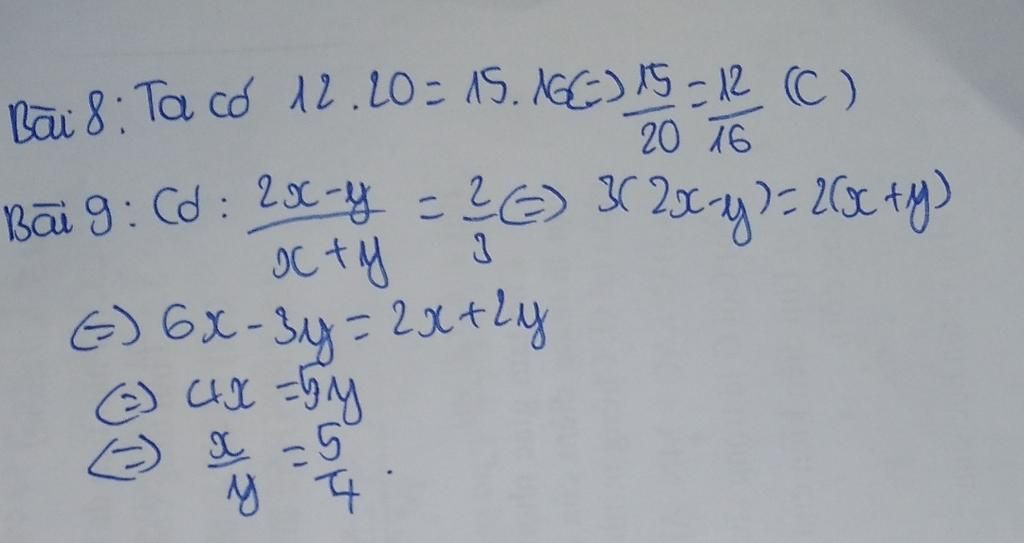 Bài 8: Ta có 12.20 = 15.16 (=) 15/20 = 12/16 (C)
Bài 9: Có: (2x-y)/(x+y) = 2/3 (=) 3(2x-y) = 2(x+y)
(=) 6x - 3y = 2x + 2y
(=) 4x = 5y
(=) x/y = 5/4.